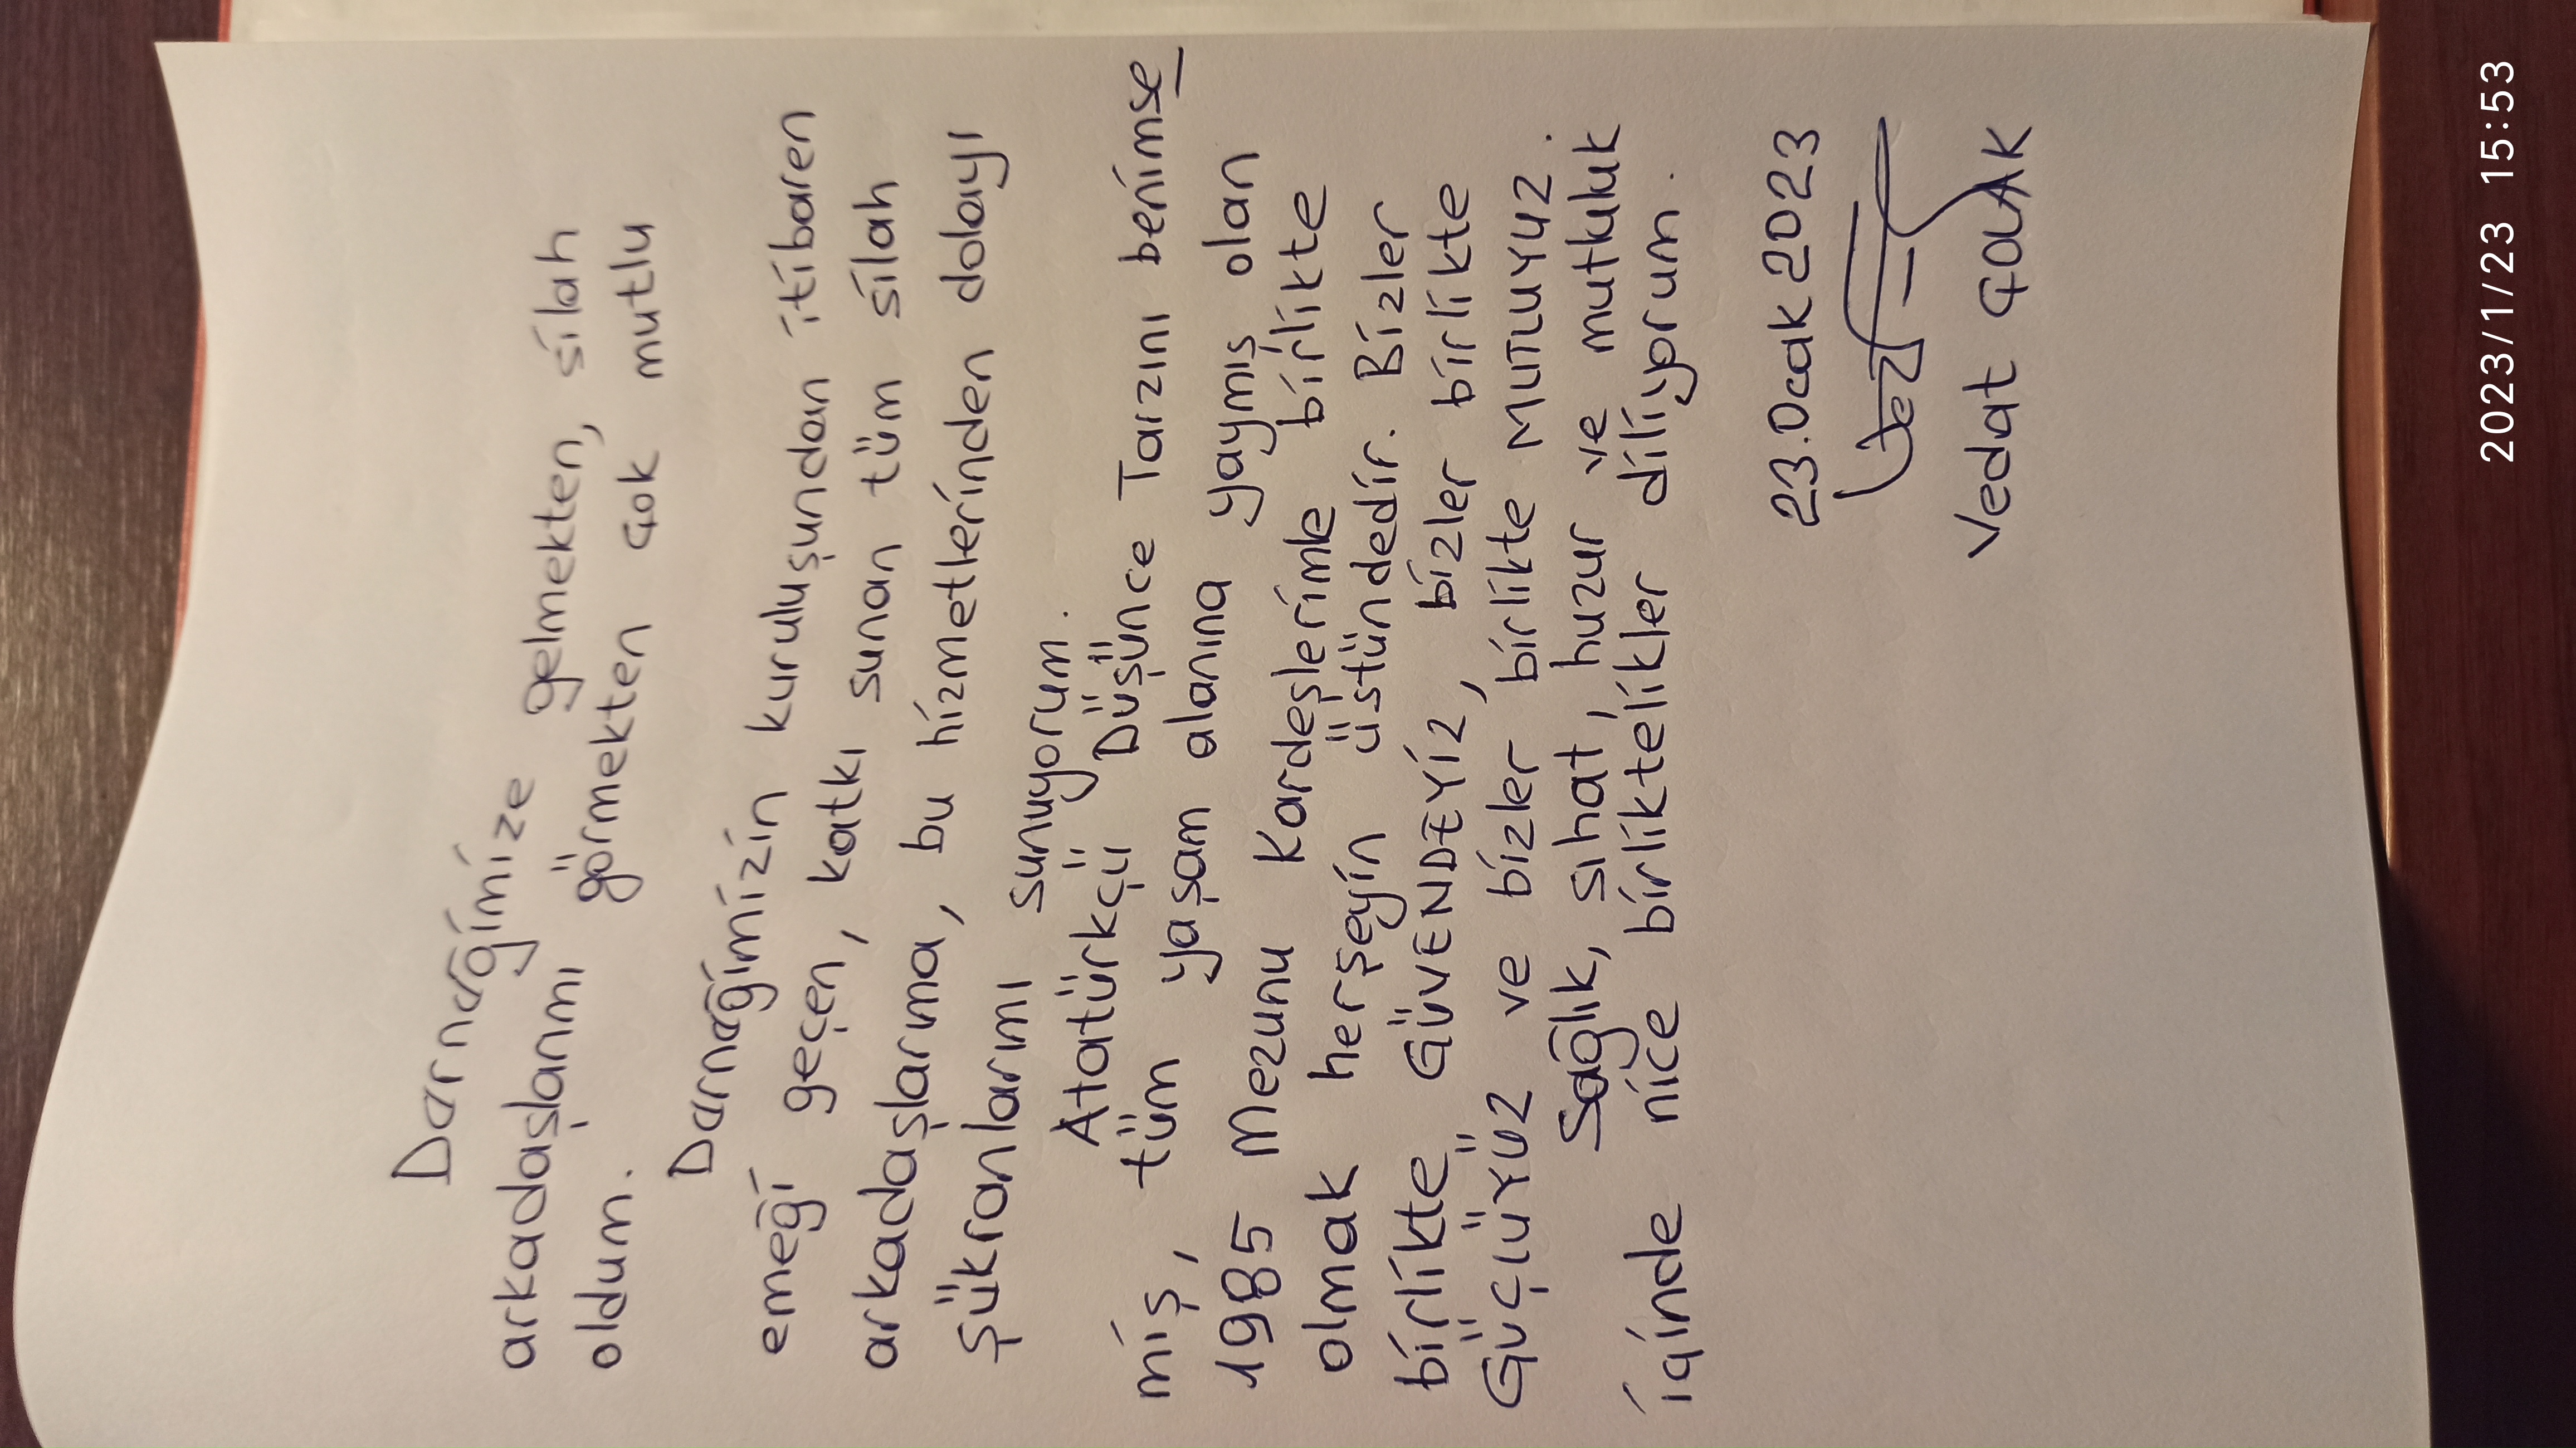 Darnağimize gelmekten, silah
arkadaşlarımı görmekten çok mutlu
oldum.
Darnağimizin kuruluşundan itibaren
emeği geçen, katkı sunan tüm silah
arkadaşlarıma, bu hizmetlerinden dolayı
şükranlarımı sunuyorum.
Atatürkçü Düşünce Tarzını benimse
miş, tüm yaşam alanına yaymış olan
1985 Mezunu Kardeşlerimle birlikte
olmak herşeyin üstündedir. Bizler
birlikte GÜVENDEYİZ, bizler birlikte
GÜÇLÜYÜZ ve bizler birlikte MUTLUYUZ.
Sağlık, sıhat, huzur ve mutluluk
içinde nice birliktelikler diliyorum.
23.Ocak 2023
Vedat ÇOLAK
2023/1/23 15:53